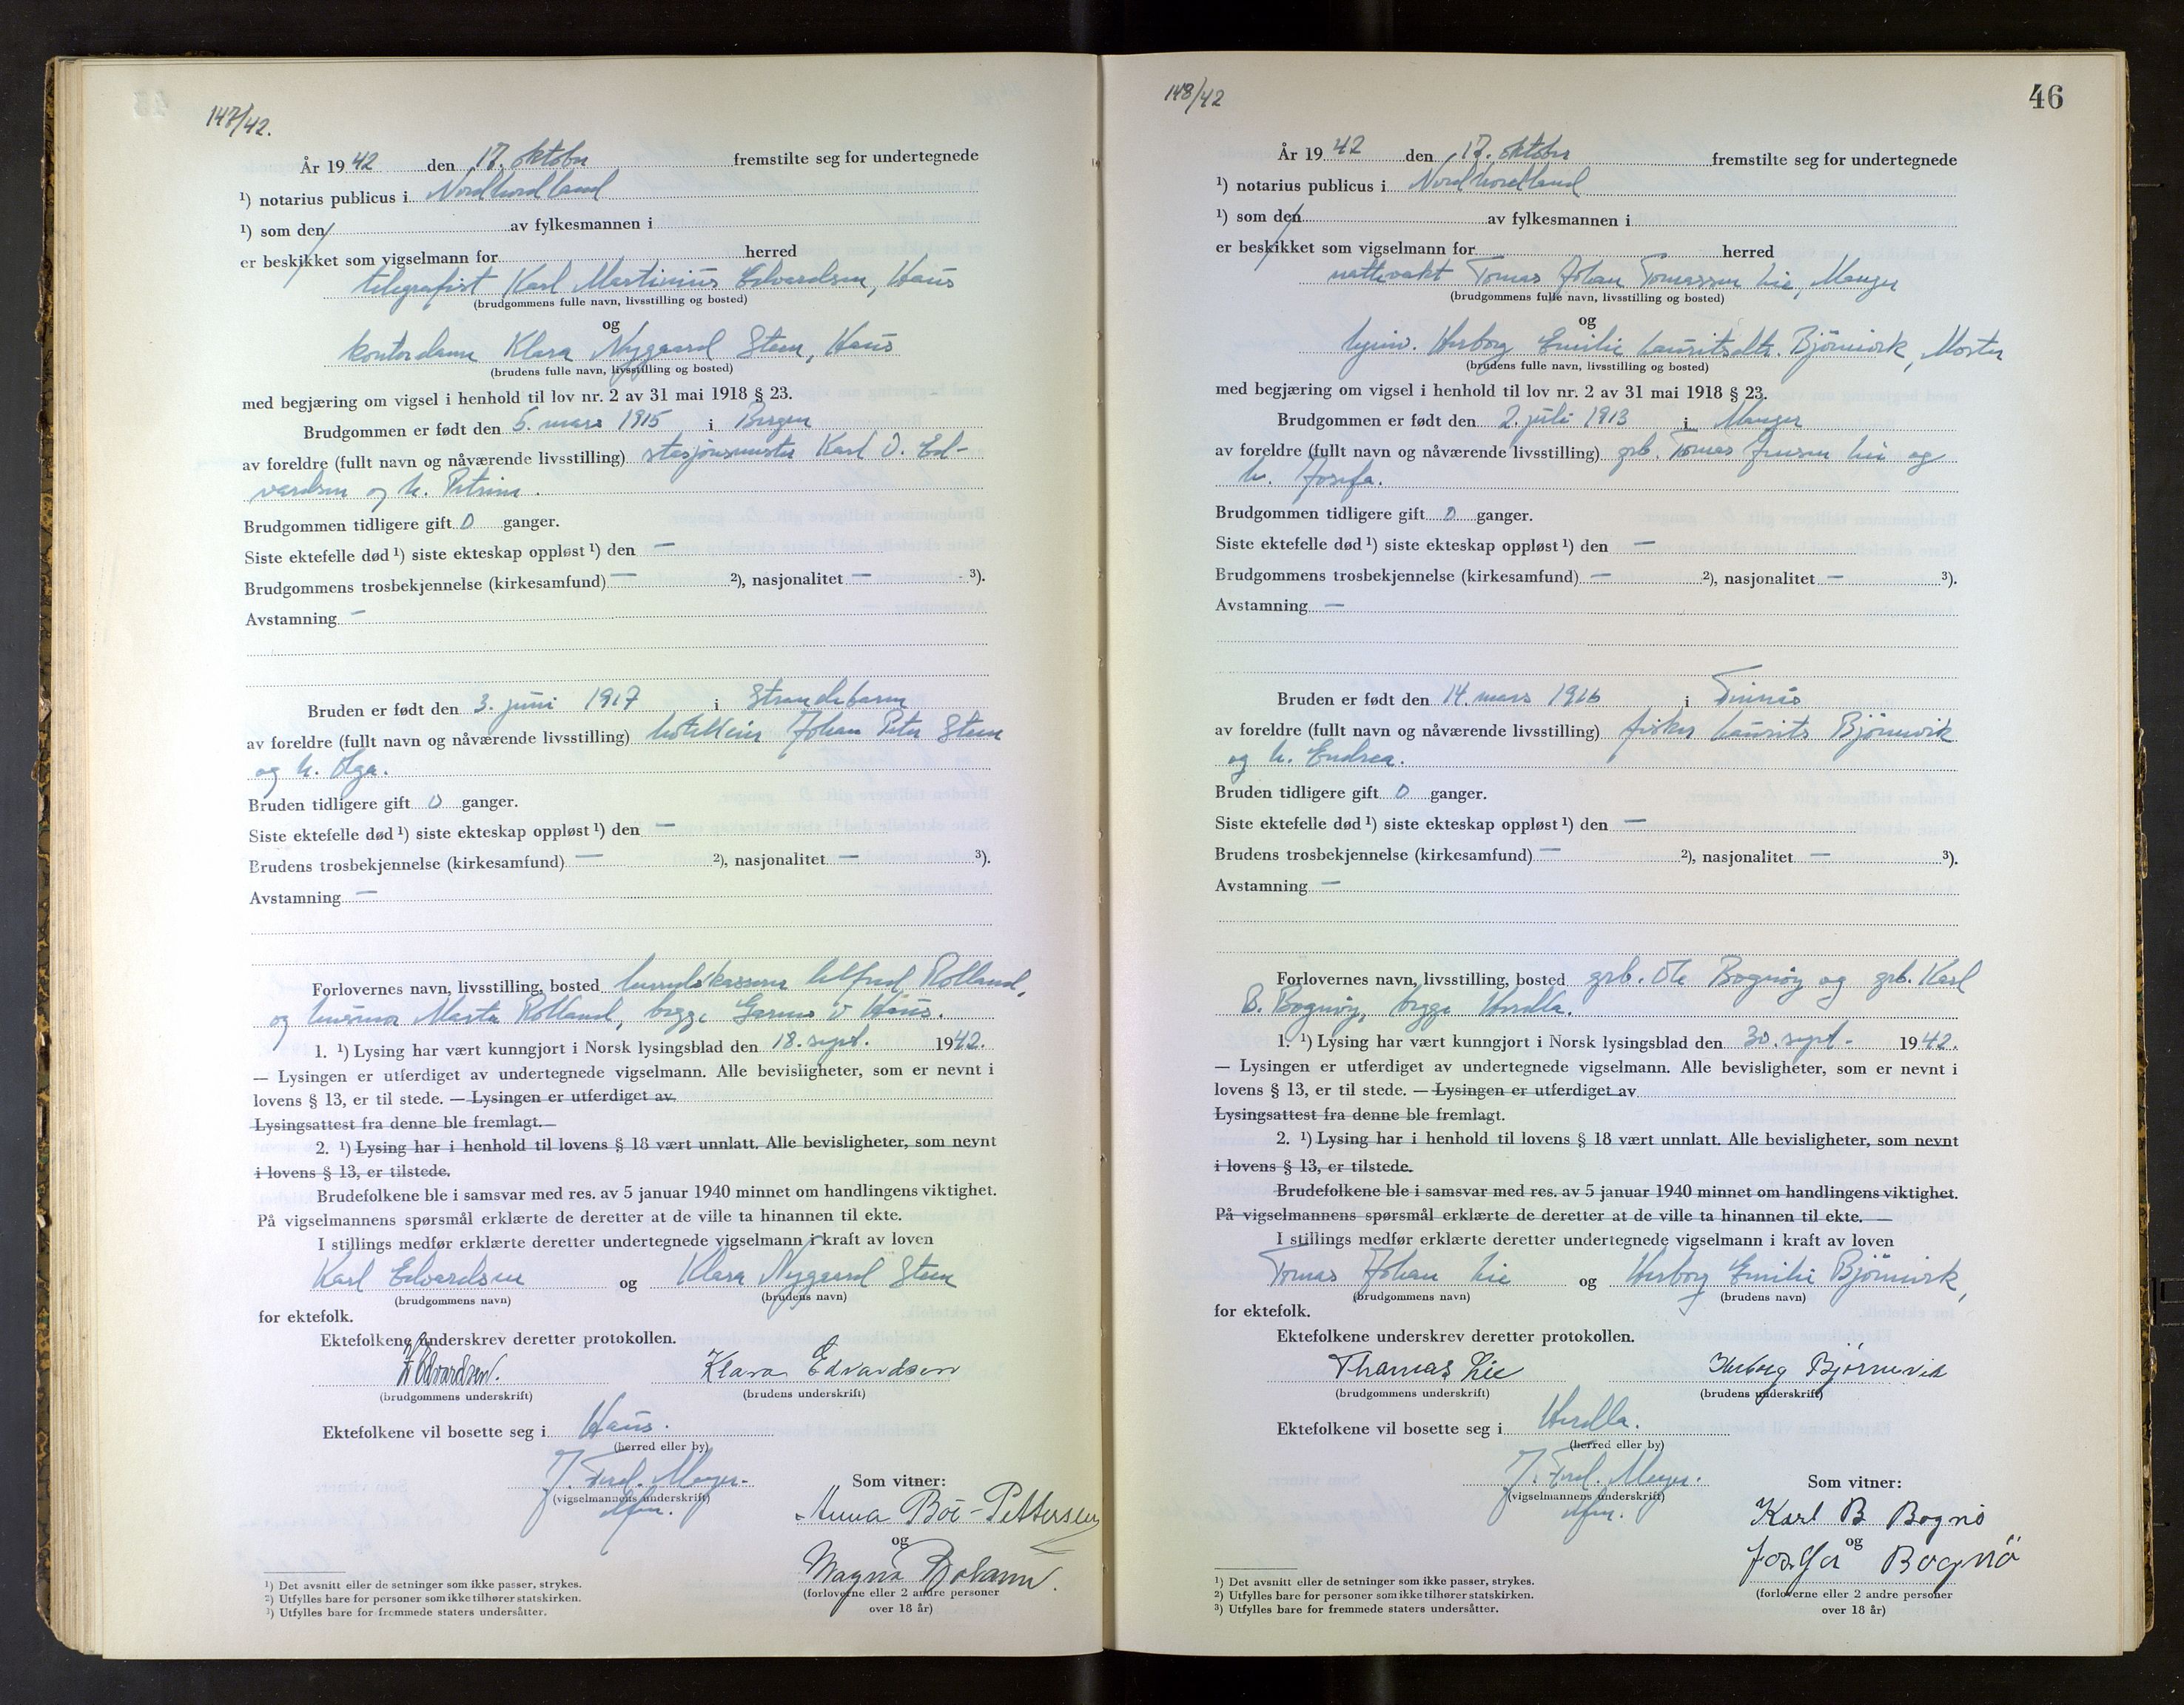 147/42.
År 1942 den 17. oktober fremstilte seg for undertegnede
¹) notarius publicus i Nordhordland
¹) som den av fylkesmannen i
er beskikket som vigselmann for herred
telegrafist Karl Martinius Edvardsen, Haus
(brudgommens fulle navn, livsstilling og bosted)
og
kontordame Klara Nygaard Steen, Haus
(brudens fulle navn, livsstilling og bosted)
med begjæring om vigsel i henhold til lov nr. 2 av 31 mai 1918 § 23.
Brudgommen er født den 5. mars 1915 i Bergen
av foreldre (fullt navn og nåværende livsstilling) stasjonsmester Karl O. Ed-
vardsen og h. Petrine.
Brudgommen tidligere gift 0 ganger.
Siste ektefelle død ¹) siste ekteskap oppløst ¹) den —
Brudgommens trosbekjennelse (kirkesamfund) — ²), nasjonalitet — ³).
Avstamning —
Bruden er født den 3. juni 1917 i Strandebarm
av foreldre (fullt navn og nåværende livsstilling) hotelleier Johan Peter Steen
og h. Olga.
Bruden tidligere gift 0 ganger.
Siste ektefelle død ¹) siste ekteskap oppløst ¹) den —
Brudens trosbekjennelse (kirkesamfund) — ²), nasjonalitet — ³).
Avstamning —
Forlovernes navn, livsstilling, bosted herredskasserer Alfred Rolland,
og husmor Marta Rolland, begge Garnes i Haus.
1. ¹) Lysing har vært kunngjort i Norsk lysingsblad den 18. sept. 1942.
— Lysingen er utferdiget av undertegnede vigselmann. Alle bevisligheter, som er nevnt i
lovens § 13, er til stede. — Lysingen er utferdiget av
Lysingsattest fra denne ble fremlagt.
2. ¹) Lysing har i henhold til lovens § 18 vært unnlatt. Alle bevisligheter, som nevnt
i lovens § 13, er tilstede.
Brudefolkene ble i samsvar med res. av 5 januar 1940 minnet om handlingens viktighet.
På vigselmannens spørsmål erklærte de deretter at de ville ta hinannen til ekte.
I stillings medfør erklærte deretter undertegnede vigselmann i kraft av loven
Karl Edvardsen og Klara Nygaard Steen
(brudgommens navn) (brudens navn)
for ektefolk.
Ektefolkene underskrev deretter protokollen.
Edvardsen. Klara Edvardsen
(brudgommens underskrift) (brudens underskrift)
Ektefolkene vil bosette seg i Haus.
(herred eller by)
J. Ferd. Meyer.
(vigselmannens underskrift)
Som vitner:
Anna Böe-Pettersen
og
Magna
(forloverne eller 2 andre personer
over 18 år)
¹) Det avsnitt eller de setninger som ikke passer, strykes.
²) Utfylles bare for personer som ikke tilhører statskirken.
³) Utfylles bare for fremmede staters undersåtter.
148/42
46
År 1942 den 17. oktober fremstilte seg for undertegnede
¹) notarius publicus i Nordhordland
¹) som den av fylkesmannen i
er beskikket som vigselmann for herred
nattevakt Tomas Johan Tomassen Lie, Manger
(brudgommens fulle navn, livsstilling og bosted)
og
hjemv. Herborg Emilie Lauritsdtr. Björnevik, Moster
(brudens fulle navn, livsstilling og bosted)
med begjæring om vigsel i henhold til lov nr. 2 av 31 mai 1918 § 23.
Brudgommen er født den 2. juli 1913 i Manger
av foreldre (fullt navn og nåværende livsstilling) grb. Tomas Jensen Lie og
h. Josefa.
Brudgommen tidligere gift 0 ganger.
Siste ektefelle død ¹) siste ekteskap oppløst ¹) den —
Brudgommens trosbekjennelse (kirkesamfund) — ²), nasjonalitet — ³).
Avstamning —
Bruden er født den 14. mars 1916 i Finnås
av foreldre (fullt navn og nåværende livsstilling) fisker Laurits Björnevik
og h. Endrea.
Bruden tidligere gift 0 ganger.
Siste ektefelle død ¹) siste ekteskap oppløst ¹) den —
Brudens trosbekjennelse (kirkesamfund) — ²), nasjonalitet — ³).
Avstamning —
Forlovernes navn, livsstilling, bosted grb. Ole Bognöy og grb. Karl
B. Bognöy, begge Herdla.
1. ¹) Lysing har vært kunngjort i Norsk lysingsblad den 30. sept. 1942.
— Lysingen er utferdiget av undertegnede vigselmann. Alle bevisligheter, som er nevnt i
lovens § 13, er til stede. — Lysingen er utferdiget av
Lysingsattest fra denne ble fremlagt.
2. ¹) Lysing har i henhold til lovens § 18 vært unnlatt. Alle bevisligheter, som nevnt
i lovens § 13, er tilstede.
Brudefolkene ble i samsvar med res. av 5 januar 1940 minnet om handlingens viktighet.
På vigselmannens spørsmål erklærte de deretter at de ville ta hinannen til ekte. —
I stillings medfør erklærte deretter undertegnede vigselmann i kraft av loven
Tomas Johan Lie og Herborg Emilie Björnevik,
(brudgommens navn) (brudens navn)
for ektefolk.
Ektefolkene underskrev deretter protokollen.
Thomas Lie Herborg Bjørnevik
(brudgommens underskrift) (brudens underskrift)
Ektefolkene vil bosette seg i Herdla.
(herred eller by)
J. Ferd. Meyer.
(vigselmannens underskrift)
Som vitner:
Karl B Bognö
og
Josefa Bognö
(forloverne eller 2 andre personer
over 18 år)
¹) Det avsnitt eller de setninger som ikke passer, strykes.
²) Utfylles bare for personer som ikke tilhører statskirken.
³) Utfylles bare for fremmede staters undersåtter.